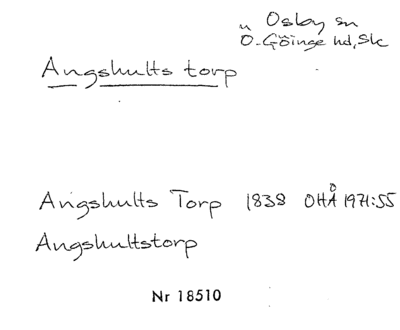 Osby sn
Ö. Göinge hd, Sk
Angshults torp
Angshults Torp 1838 OHÅ 1971:55
Angshultstorp
Nr 18510